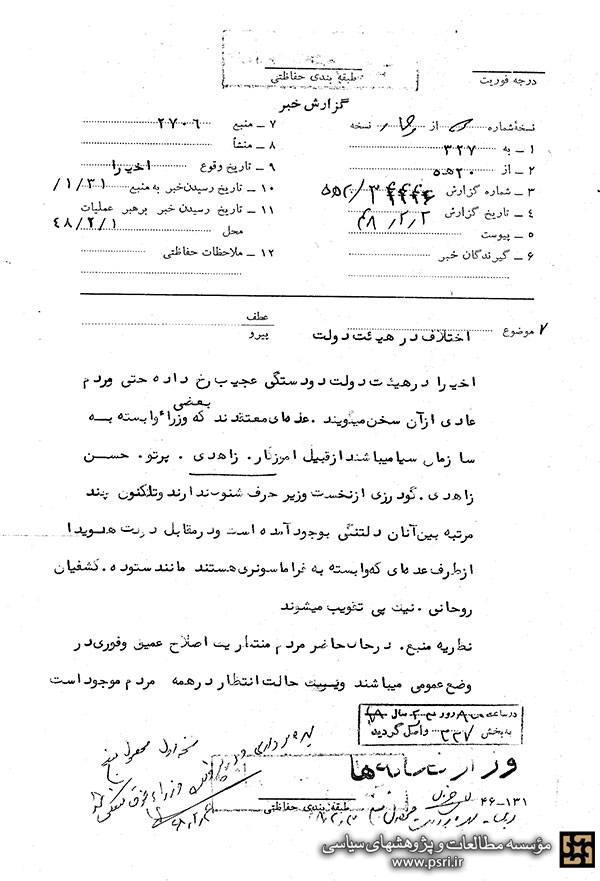 درجه فوریت
طبقه بندی حفاظتی
گزارش خبر
نسخه شماره از نسخه
۱ ـ به ۳۲۷
۲ ـ از ۲۰ ه ۵
۳ ـ شماره گزارش
۴ ـ تاریخ گزارش ۴۸/۲/۲
۵ ـ پیوست
۶ ـ گیرندگان خبر
۷ ـ منبع ۲۷۰۶
۸ ـ منشأ
۹ ـ تاریخ وقوع اخیرا
۱۰ ـ تاریخ رسیدن خبر به منبع ۱/۳۱/
۱۱ ـ تاریخ رسیدن خبر برهبر عملیات
محل ۴۸/۲/۱
۱۲ ـ ملاحظات حفاظتی
۷ موضوع اختلاف در هیئت دولت
عطف
پیرو
اخیرا در هیئت دولت دودستگی عجیب رخ داده حتی مردم
عادی از آن سخن میگویند . عده‌ای معتقدند که بعضی وزراء وابسته به
سازمان سیا میباشند از قبیل آموزگار . زاهدی . پرتو . حسن
زاهدی . گودرزی از نخست وزیر حرف شنوی ندارند و تاکنون چند
مرتبه بین آنان دلتنگی بوجود آمده است و در مقابل دولت هویدا
از طرف عده‌ای که وابسته به فراماسونری هستند مانند ستوده . کشفیان
روحانی . نیک پی تقویت میشوند
نظریه منبع . در حال حاضر مردم منتظر یک اصلاح عمیق و فوری در
وضع عمومی میباشند و یک حالت انتظار در همه مردم موجود است
در ساعت روز سال
به بخش ۳۳۷ واصل گردید
وزارتخانه‌ها
نسخه اول
طبقه بندی حفاظتی
۴۶-۱۳۱
مؤسسه مطالعات و پژوهشهای سیاسی
www.psri.ir